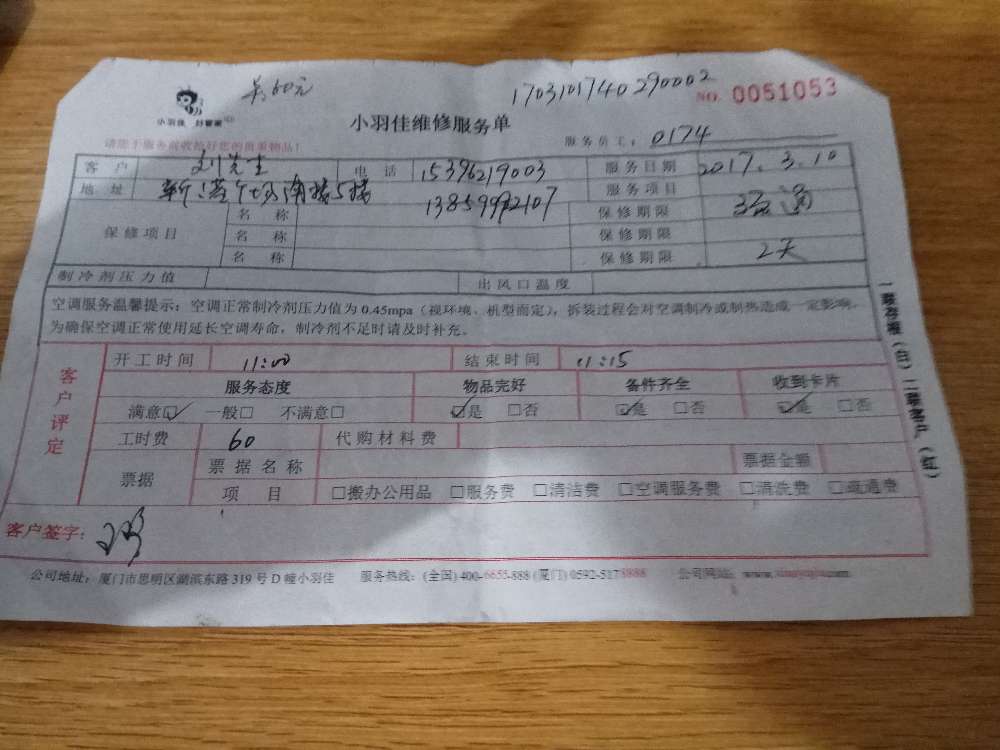 60元
1703101740290002
NO. 0051053
小羽佳 好管家
小羽佳维修服务单
请您于服务前收拾好您的贵重物品！
服务员工：0174
客户 刘先生 电话 15396219003 服务日期 2017.3.10
地址 南楼5楼 13859992107 服务项目 疏通
保修项目
名称 保修期限
名称 保修期限
名称 保修期限 2天
制冷剂压力值 出风口温度
空调服务温馨提示：空调正常制冷剂压力值为0.45mpa（视环境、机型而定），拆装过程会对空调制冷或制热造成一定影响。
为确保空调正常使用延长空调寿命，制冷剂不足时请及时补充。
客户评定
开工时间 11:00 结束时间 11:15
服务态度 物品完好 备件齐全 收到卡片
满意☑ 一般□ 不满意□ ☑是 □否 ☑是 □否 ☑是 □否
工时费 60 代购材料费
票据 票据名称 票据金额
项目 □搬办公用品 □服务费 □清洁费 □空调服务费 □清洗费 □疏通费
客户签字：
公司地址：厦门市思明区湖滨东路319号D幢小羽佳 服务热线：(全国) 400-6655-888 (厦门) 0592-5178888 公司网站：www.xiaoyujia.com
一联存根（白）二联客户（红）